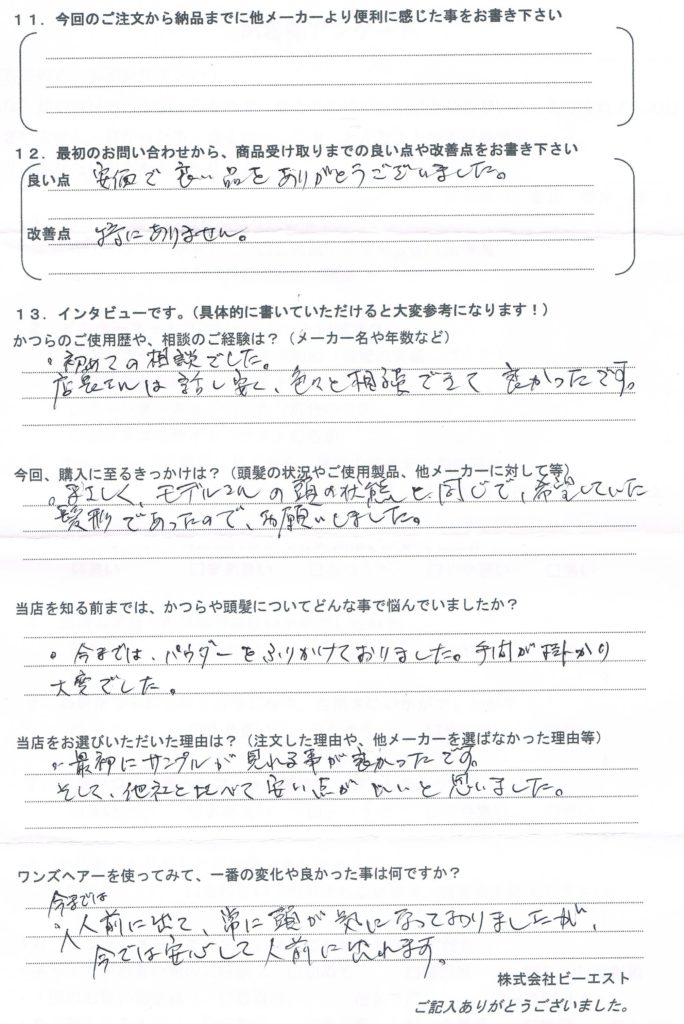 11. 今回のご注文から納品までに他メーカーより便利に感じた事をお書き下さい
12. 最初のお問い合わせから、商品受け取りまでの良い点や改善点をお書き下さい
良い点 安価で良い品をありがとうございました。
改善点 特にありません。
13. インタビューです。（具体的に書いていただけると大変参考になります！）
かつらのご使用歴や、相談のご経験は？（メーカー名や年数など）
。初めての相談でした。
店長さんは話し安く、色々と相談できて良かったです。
今回、購入に至るきっかけは？（頭髪の状況やご使用製品、他メーカーに対して等）
。まさしく、モデルさんの頭の状態と同じで、希望していた
髪形であったので、お願いしました。
当店を知る前までは、かつらや頭髪についてどんな事で悩んでいましたか？
。今までは、パウダーをふりかけておりました。手間が掛かり
大変でした。
当店をお選びいただいた理由は？（注文した理由や、他メーカーを選ばなかった理由等）
。最初にサンプルが見れる事が良かったです。
そして、他社と比べて安い点が良いと思いました。
ワンズヘアーを使ってみて、一番の変化や良かった事は何ですか？
今までは
。人前に出て、常に頭が気になっておりましたが、
今では安心して人前に出れます。
株式会社ビーエスト
ご記入ありがとうございました。